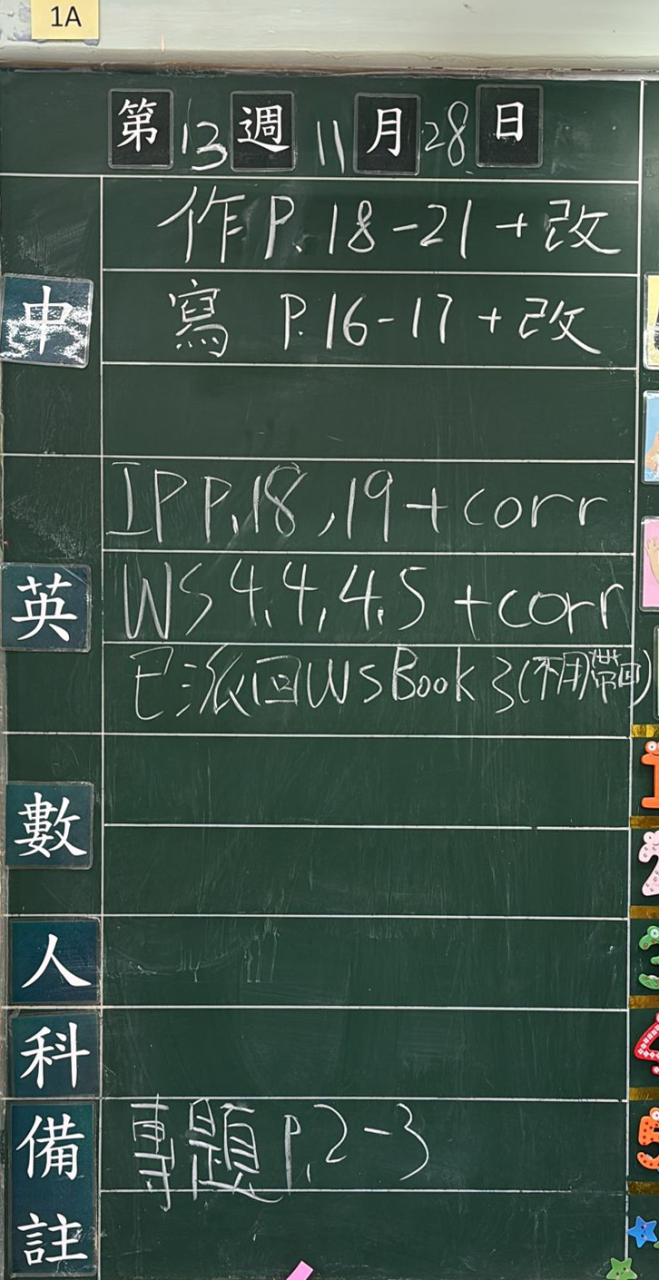 1A
第13週11月28日
作P.18-21+改
中
寫 P.16-17+改
IP P.18,19+corr
英
WS 4.4,4.5+corr
已派回WS Book 3(不用帶回)
數
人
科
備
專題P.2-3
註
1
2
3
4
5